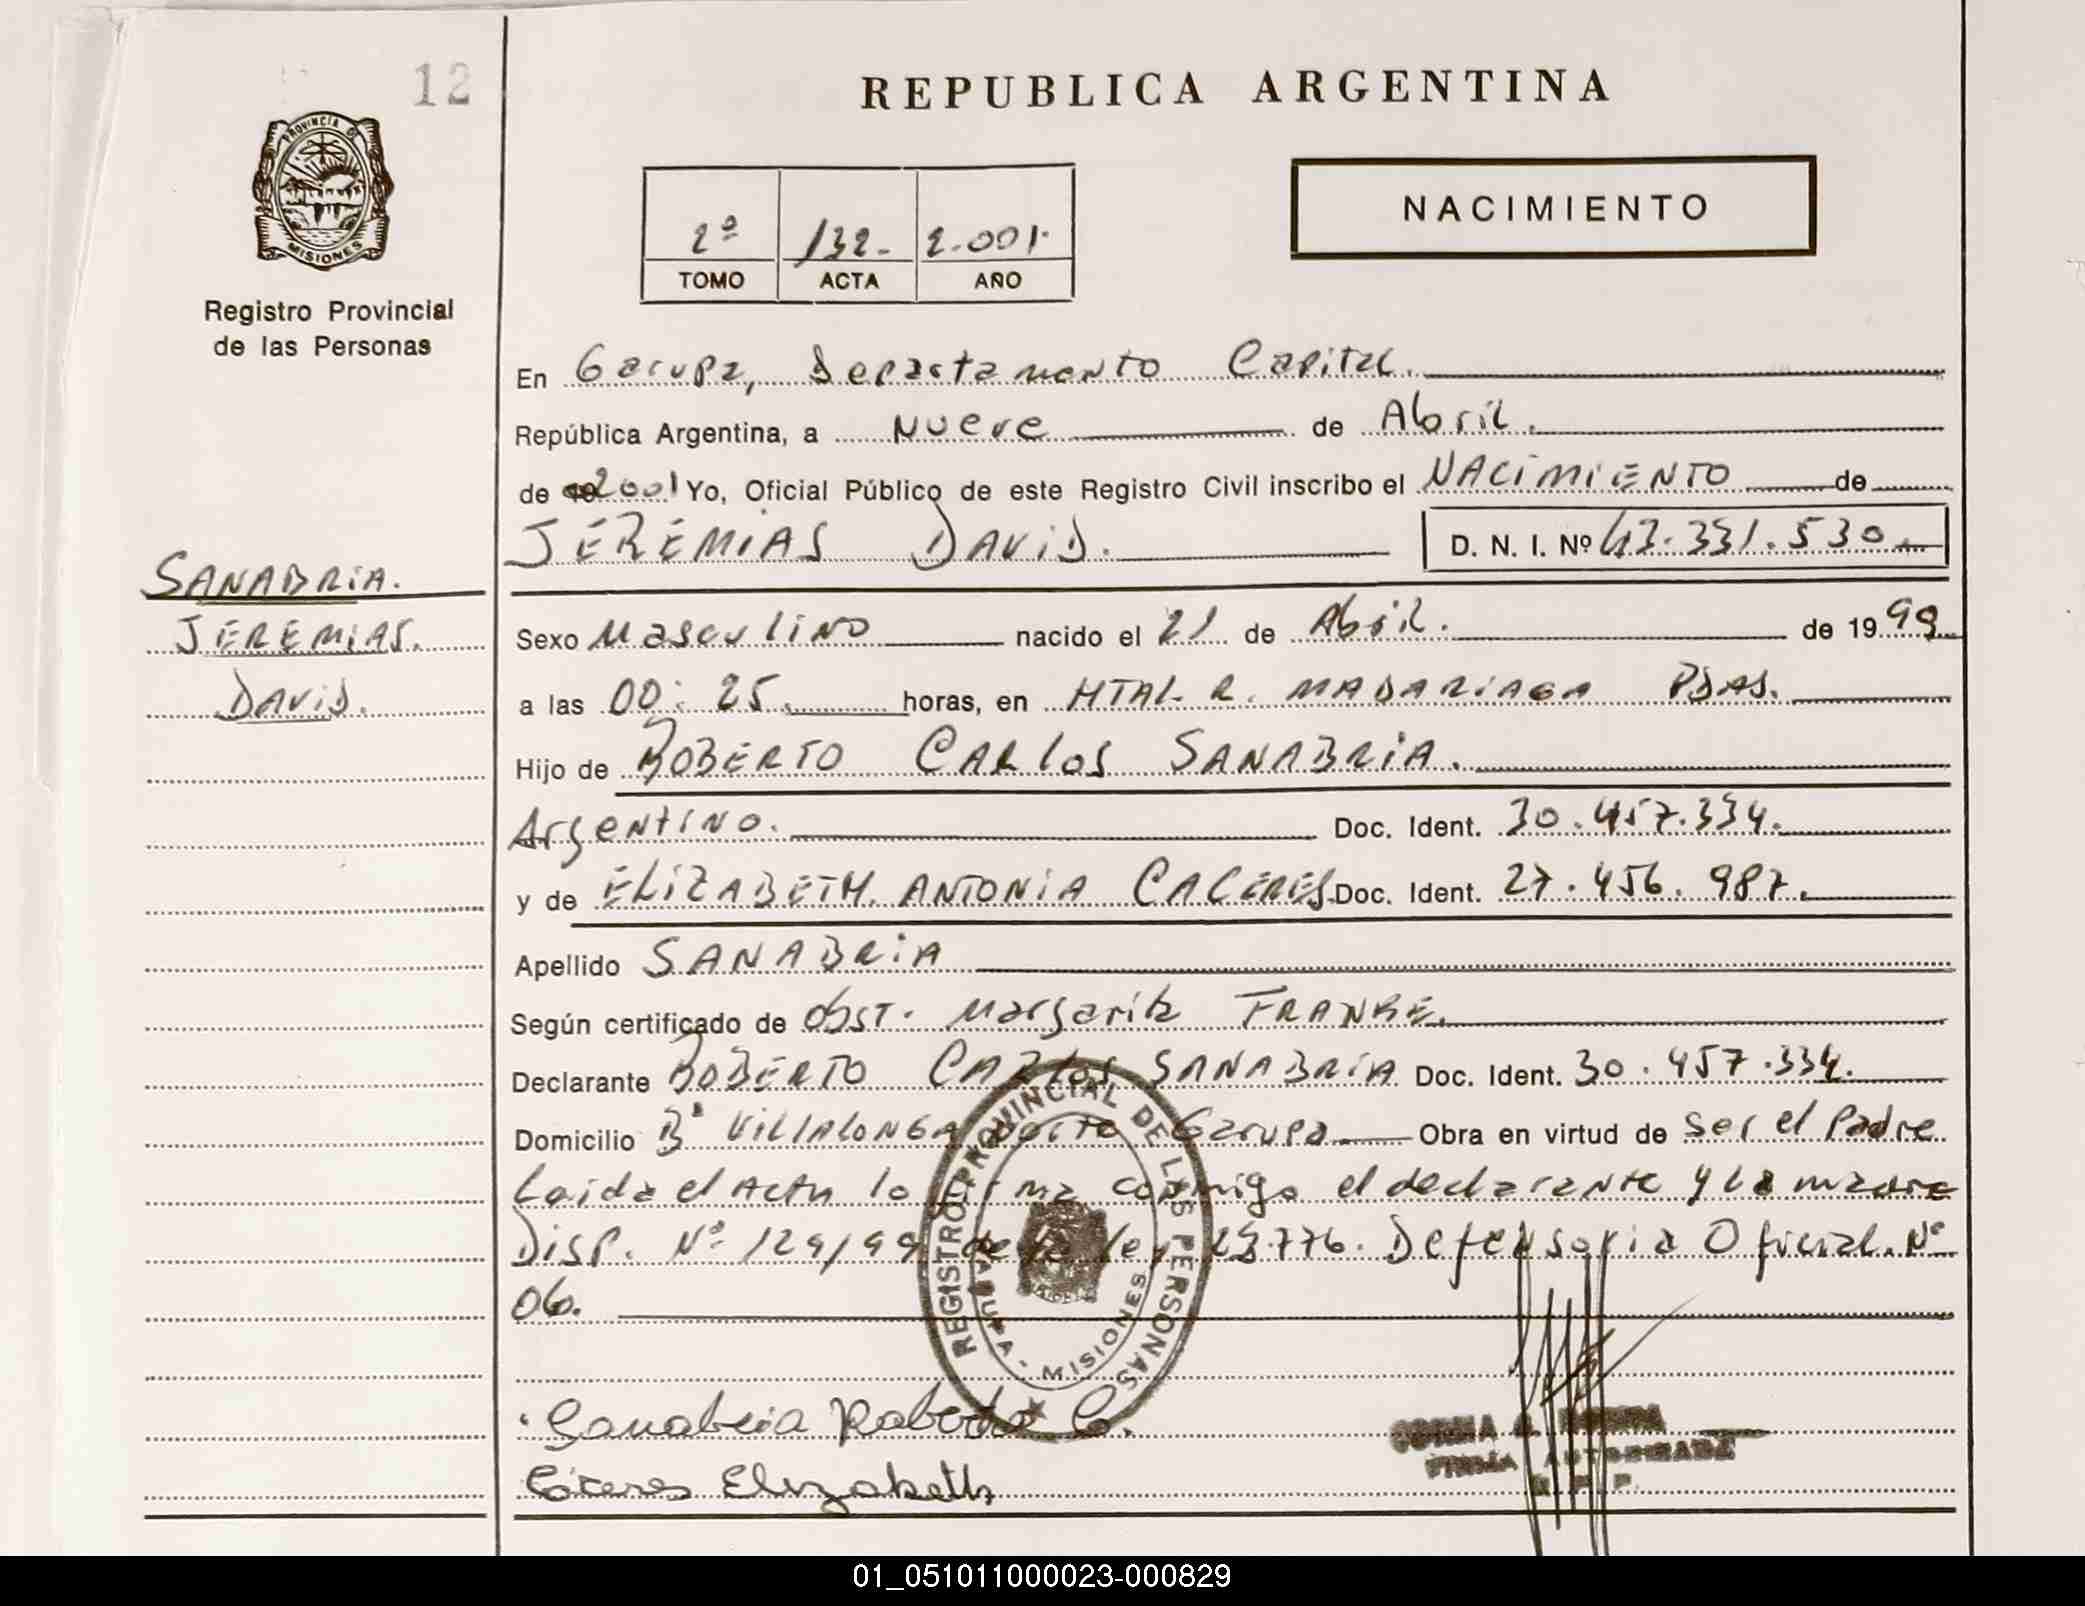 12
REPUBLICA ARGENTINA
PROVINCIA DE
MISIONES
NACIMIENTO
2º 132- 2.001.
TOMO ACTA AÑO
Registro Provincial
de las Personas
En Garupa, Departamento Capital.
República Argentina, a Nueve de Abril.
de 2001 Yo, Oficial Público de este Registro Civil inscribo el NACIMIENTO de
JEREMIAS DAVID. D. N. I. Nº 43.331.530
SANABRIA.
JEREMIAS.
DAVID.
Sexo Masculino nacido el 21 de Abril. de 1999
a las 00:25 horas, en HTAL R. MADARIAGA PDAS.
Hijo de ROBERTO CARLOS SANABRIA.
Argentino. Doc. Ident. 30.457.334.
y de ELIZABETH. ANTONIA CACERES. Doc. Ident. 27.456.987.
Apellido SANABRIA
Según certificado de Obst. Margarita
Declarante ROBERTO CARLOS SANABRIA Doc. Ident. 30.457.334.
Domicilio Bº VILLALONGA Garupa Obra en virtud de ser el Padre
Leida el Acta la firma conmigo el declarante y la madre
Disp. Nº 129/99 de la ley 23.776. Defensoria Oficial. Nº
06.
REGISTRO PROVINCIAL DE LAS PERSONAS
GARUPA - MISIONES
Sanabria Roberto C.
Cáceres Elizabeth
FIRMA AUTORIZADA
01_051011000023-000829